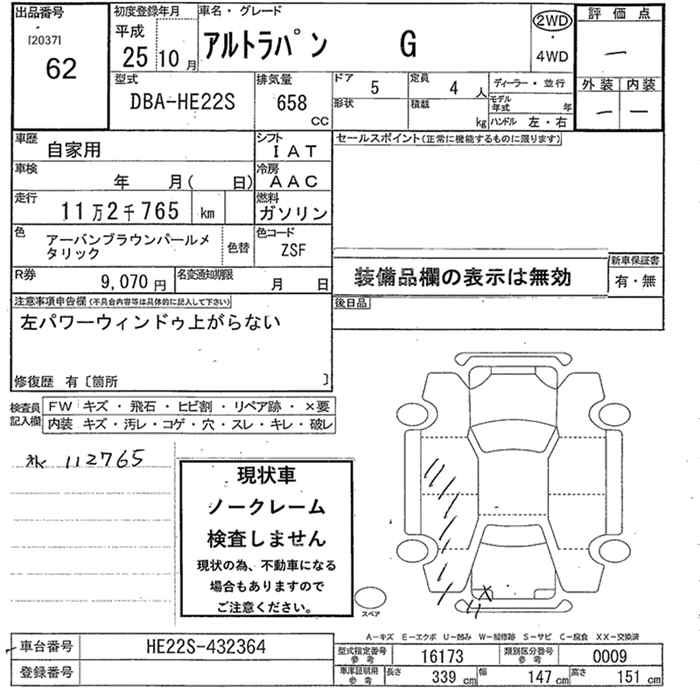 出品番号
[2037]
62
初度登録年月
平成
25 10月
車名・グレード
アルトラパン G
2WD
4WD
評価点
—
外装 内装
— —
型式
DBA-HE22S
排気量
658
CC
ドア 5
定員 4 人
ディーラー・並行
形状
積載
kg
モデル年式 年
ハンドル 左・右
車歴
自家用
シフト
IAT
セールスポイント(正常に機能するものに限ります)
車検
年 月( 日)
冷房
AAC
走行
11万2千765 km
燃料
ガソリン
色
アーバンブラウンパールメ
タリック
色替
色コード
ZSF
R券
9,070円
名変通知期限
月 日
装備品欄の表示は無効
新車保証書
有・無
注意事項申告欄(不具合内容等は具体的に記入して下さい)
左パワーウィンドゥ上がらない
後日品
修復歴 有〔箇所 〕
検査員
記入欄
FW キズ・飛石・ヒビ割・リペア跡・×要
内装 キズ・汚レ・コゲ・穴・スレ・キレ・破レ
112765
現状車
ノークレーム
検査しません
現状の為、不動車になる
場合もありますので
ご注意ください。
スペア
X
A-キズ E-エクボ U-凹み W-補修跡 S-サビ C-腐食 XX-交換済
車台番号
HE22S-432364
型式指定番号
参考
16173
類別区分番号
参考
0009
登録番号
車庫証明用
参考
長さ 339 cm
幅 147 cm
高さ 151 cm